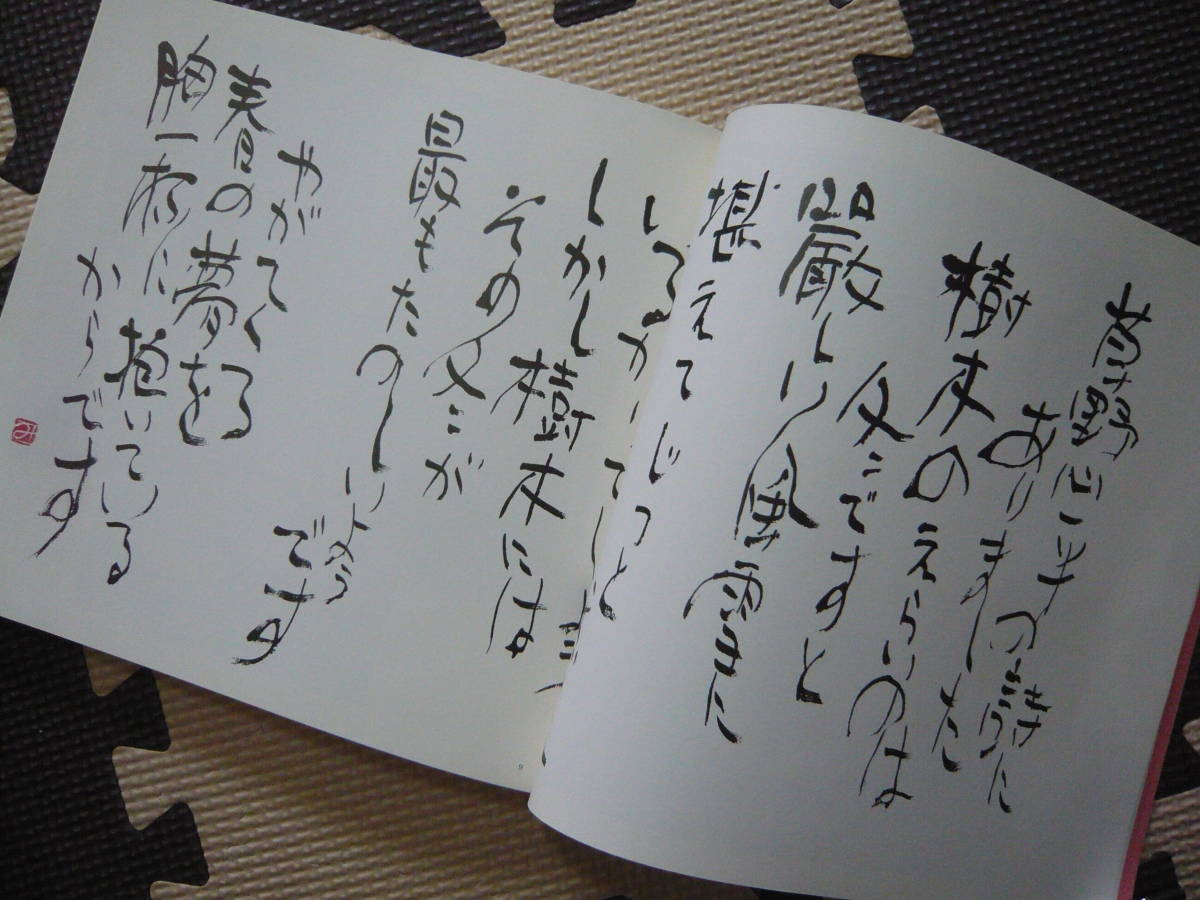 草野心平の詩に
ありました
樹木のえらいのは
冬ですと
厳しい風雪に
堪えてじっと
いるか
しかし樹木には
その冬が
最もたのしいよう
です
やがてくる
春の夢を
胸一杯に
抱いている
からです
9